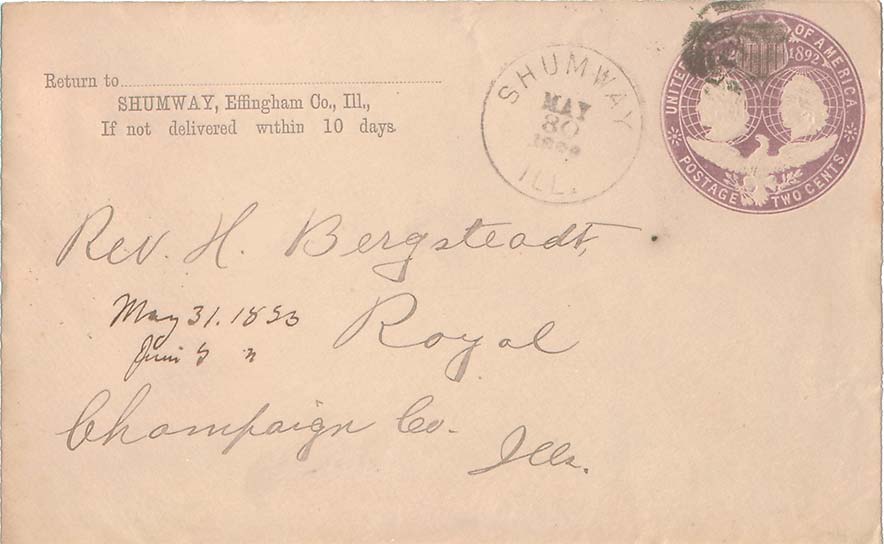 Return to
SHUMWAY, Effingham Co., Ill.,
If not delivered within 10 days.
SHUMWAY
MAY
30
ILL.
UNITED OF AMERICA
1892
POSTAGE TWO CENTS
Rev. H. Bergsteadt,
May 31. 1893
Royal
Champaign Co.
Ills.